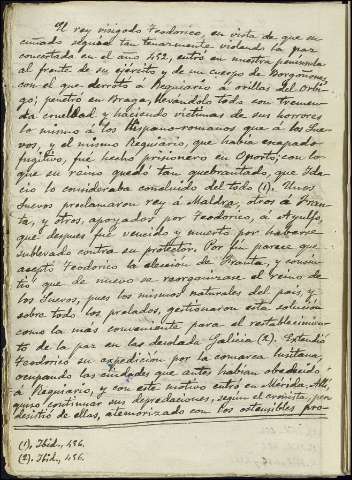 El rey visigodo Teodorico, en vista de que su
cuñado seguía tan tenazmente violando la paz
concertada en el año 452, entró en nuestra península
al frente de su ejército y de un cuerpo de Borgoñones,
con el que derrotó á Requiario á orillas del Orbi-
go; penetró en Braga, llevándolo todo con tremen-
da crueldad y haciendo víctimas de sus horrores
lo mismo á los Hispano-romanos que á los Sue-
vos, y el mismo Requiario, que había escapado
fugitivo, fué hecho prisionero en Oporto, con lo
que su reino quedó tan quebrantado, que Ida-
cio lo consideraba concluido del todo (1). Unos
Suevos proclamaron rey á Maldra, otros á Fran-
ta, y otros, apoyados por Teodorico, á Ayulfo,
que después fué vencido y muerto por haberse
sublevado contra su protector. Por fin parece que
aceptó Teodorico la elección de Franta, y consin-
tió que de nuevo se reorganizase el reino de
los Suevos, pues los mismos naturales del país, y
sobre todo los prelados, gestionaron esta solución
como la más conveniente para el restablecimien-
to de la paz en la desolada Galicia (2). Extendió
Teodorico su expedición por la comarca lusitana,
ocupando las ciudades que antes habían obedecido
á Requiario, y con este motivo entró en Mérida. Allí
quiso continuar sus depredaciones, según el cronista, pero
desistió de ellas, atemorizado con los ostensibles pro-
(1). Ibid., 456.
(2). Ibid., 456.